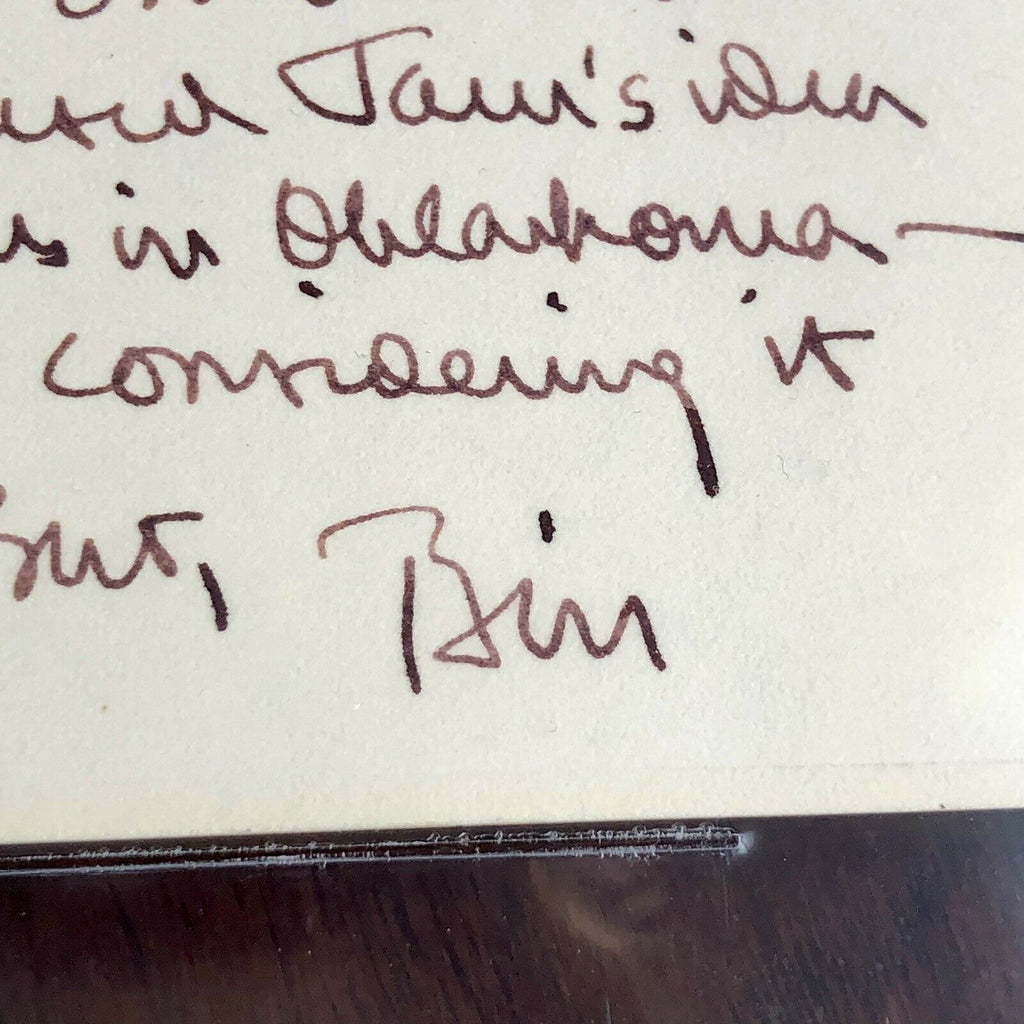 Tam's idea
in Oklahoma —
considering it
But, Bill